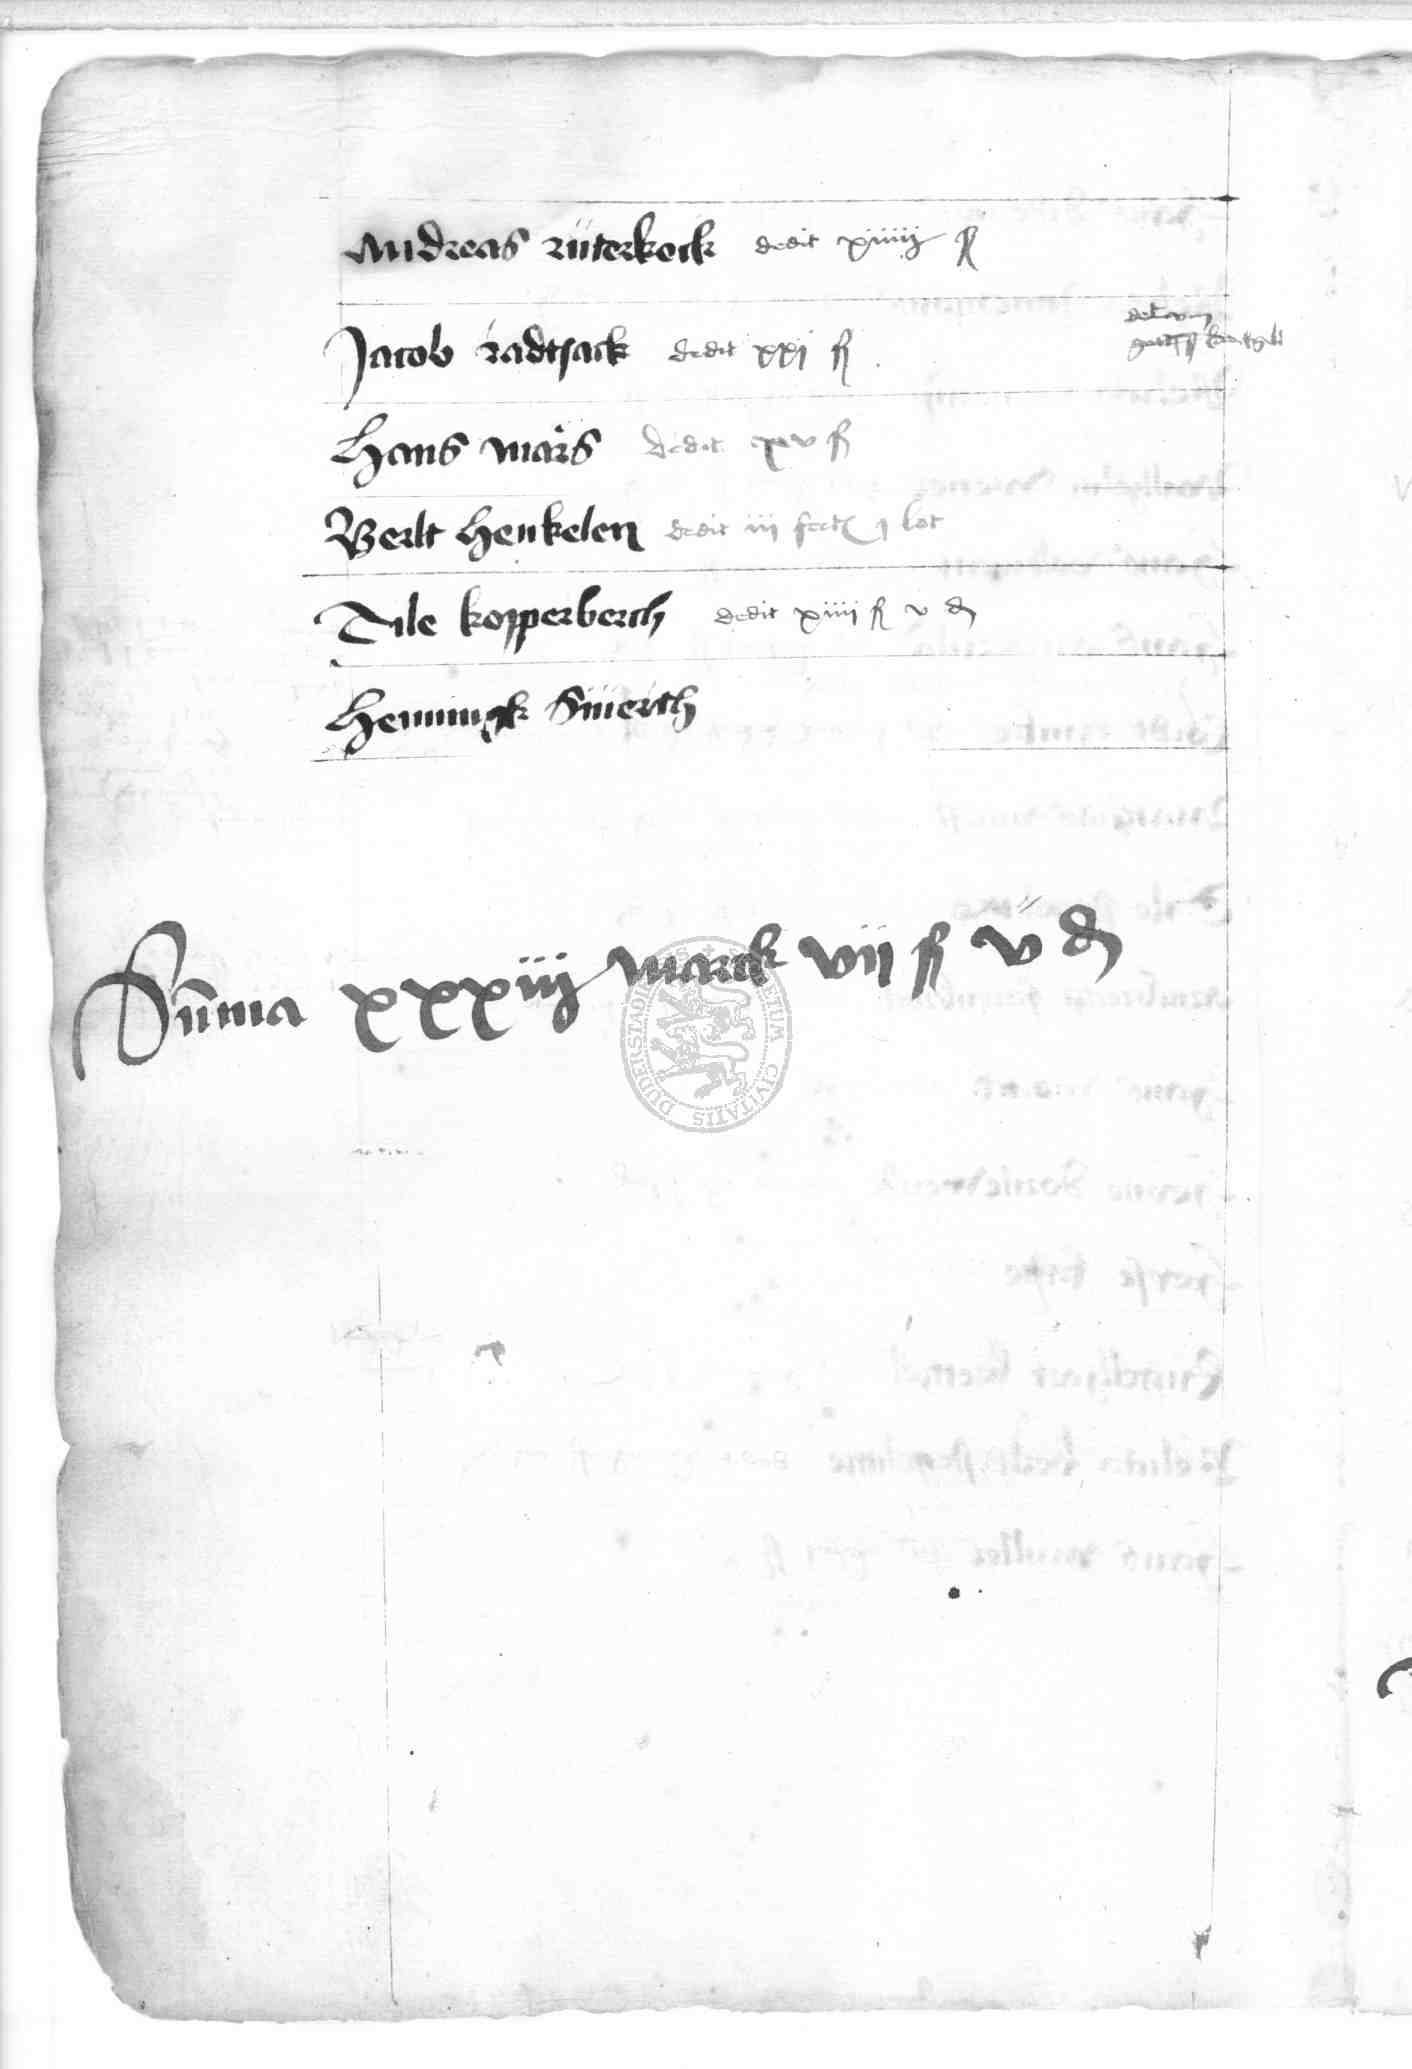 Andreas rüterkock dedit xiiiij ß
Jacob radtsack dedit xxi ß
Hans mars dedit xv ß
Berlt Henkelen dedit iii fert j lot
Tile kopperberch dedit xiiii ß v ₰
Henningk Smerth
Sūma xxxiij marck vii ß v ₰
DUDERSTADENSIS CIVITATIS